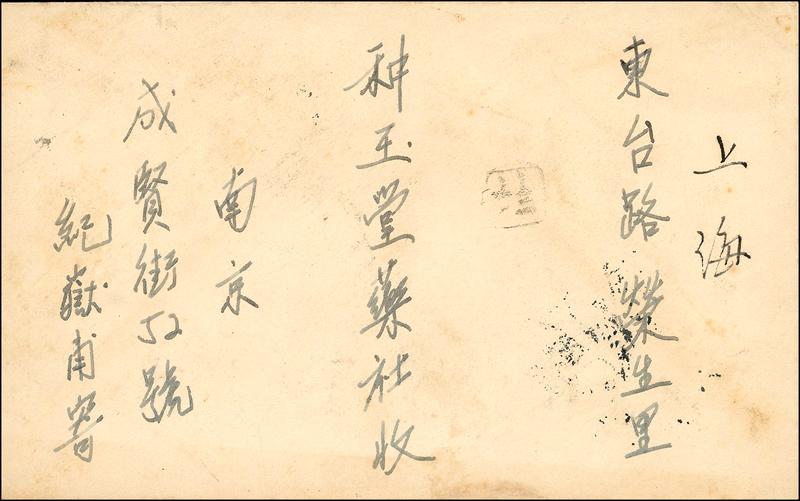 上海
東台路榮生里
种玉堂藥社收
南京
成賢街52號
紀嶽甫寄